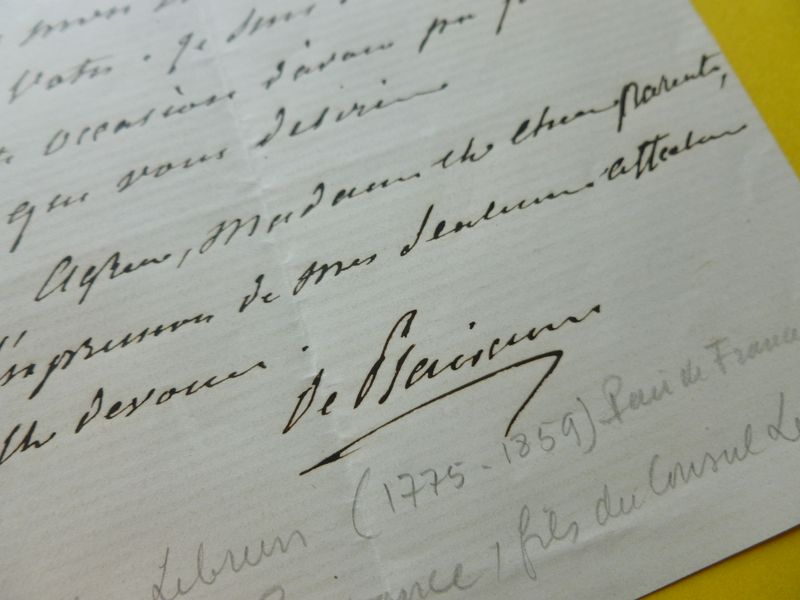 mon
Votre. Je suis
occasion d'avoir pu
que vous désirie
Agréer, Madame et chere parente,
l'expression de mes sentimens affectueux
et devoués.
de Plaisance
(1775-1859) Pair de France
Lebrun
, fils du Consul Le